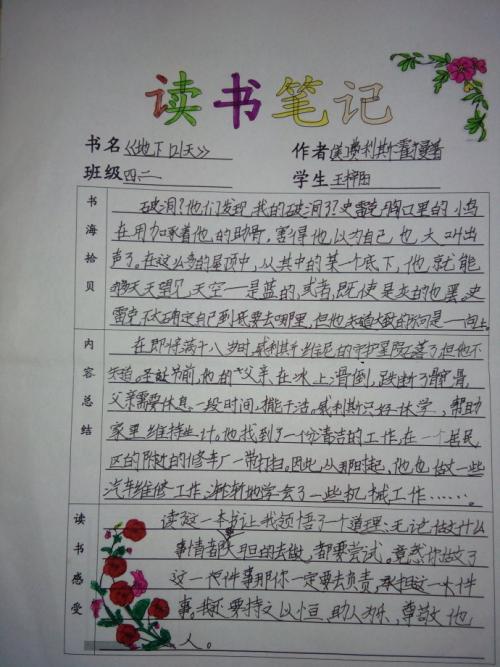 读书笔记
书名《地下121天》 作者[美]费利斯·霍尔曼著
班级四、二 学生王梓阳
书海拾贝
破洞?他们发现我的破洞了?史雷克胸口里的小鸟
在用力啄着他的肋骨。害得他以为自己也大叫出
声了。在这么多的屋顶中,从其中的某一个底下,他就能
够天天望见天空—是蓝的,或者,既使是灰的也罢。史
雷克不太确定自己到底要去哪里,但他知道大致的方向是一向上。
内容总结
在即将满十八岁时,威利斯·维尼的守护星殒落了但他不
知道。圣诞节前,他的父亲在冰上滑倒,跌断了髋骨
父亲需要休息一段时间,才能干活。威利斯只好休学,帮助
家里维持生计。他找到了一份清洁的工作,在一个居民
区的附近的修车厂一带打扫。因此,从那时起,他也做一些
汽车维修工作,渐渐地学会了一些机械工作……
读书感受
读这一本书让我领悟了一个道理:无论做什么
事情都大胆的去做,都要尝试。竟然你做了
这一件事那你一定要去负责,承担这一次件
事。我还要持之以恒,助人为乐,尊敬他
人。